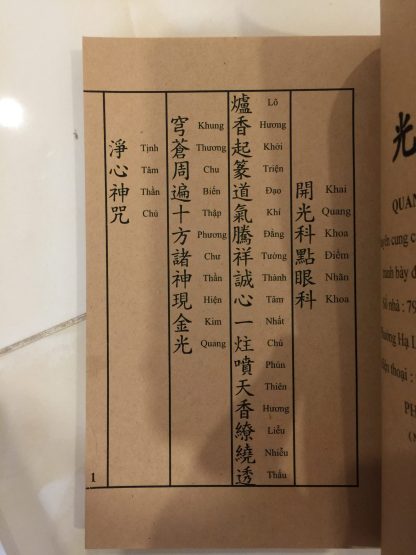 開光科點眼科
Khai Quang Khoa Điểm Nhãn Khoa
爐香起篆道氣騰祥誠心一炷噴天香繚繞透
Lô Hương Khởi Triện Đạo Khí Đằng Tường Thành Tâm Nhất Chú Phún Thiên Hương Liễu Nhiễu Thấu
穹蒼周遍十方諸神現金光
Khung Thương Chu Biến Thập Phương Chư Thần Hiện Kim Quang
淨心神咒
Tịnh Tâm Thần Chú
1
光
QUAN
nh bày đ
Số nhà : 79
Phương Hạ L
iện thoại :